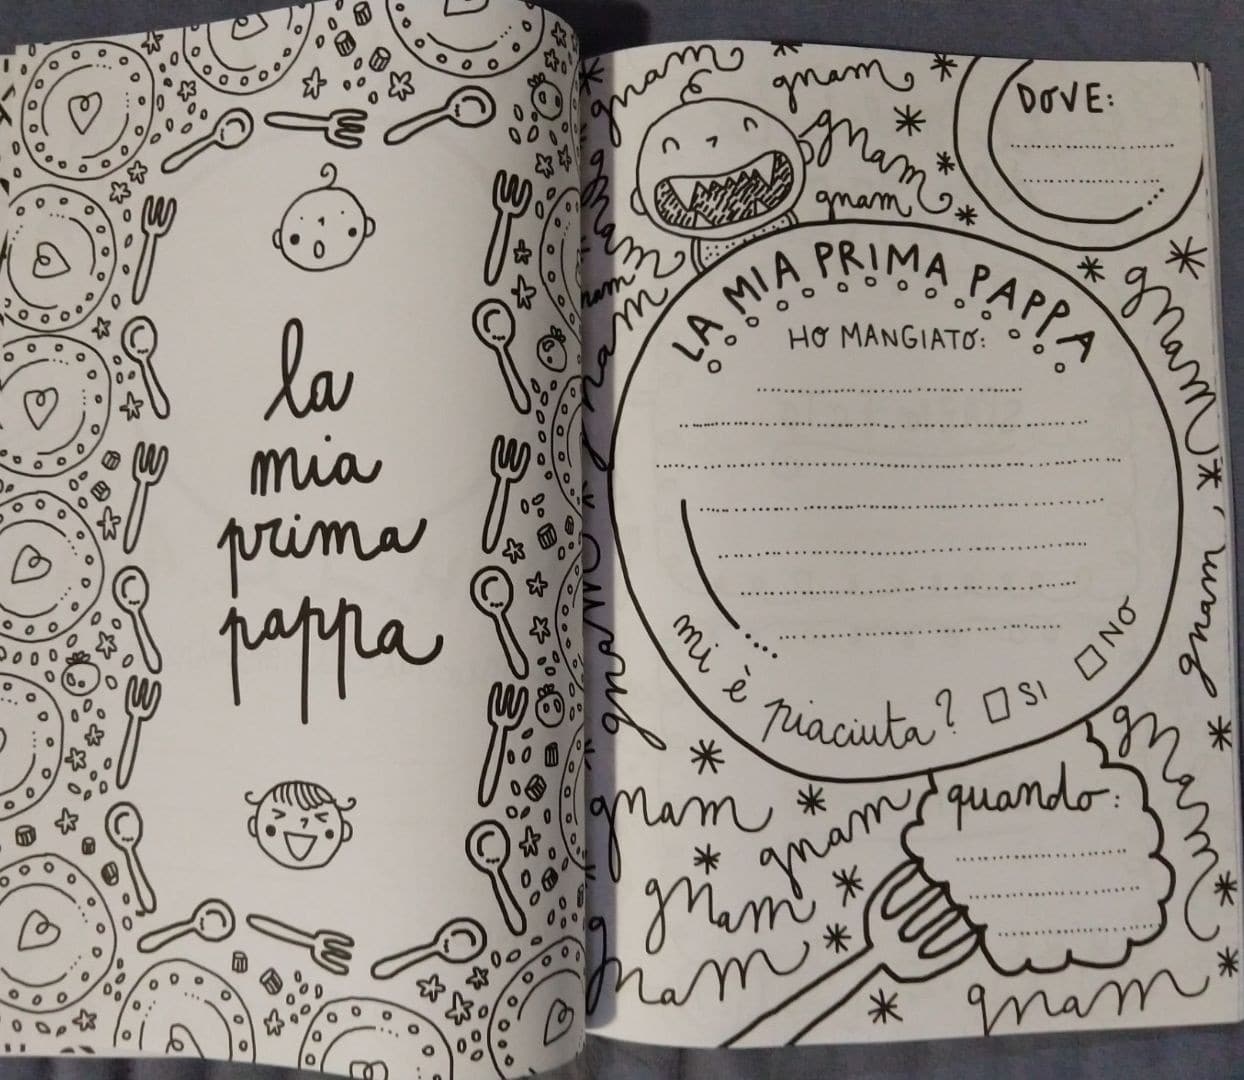 la
mia
prima
pappa
gnam
gnam
gnam
gnam
DOVE:
gnam
nam
gnam
LA MIA PRIMA PAPPA
HO MANGIATO:
gnam
gnam
gnam
mi è piaciuta? SI NO
gnam
quando:
gnam
gnam
gnam
gnam
gnam